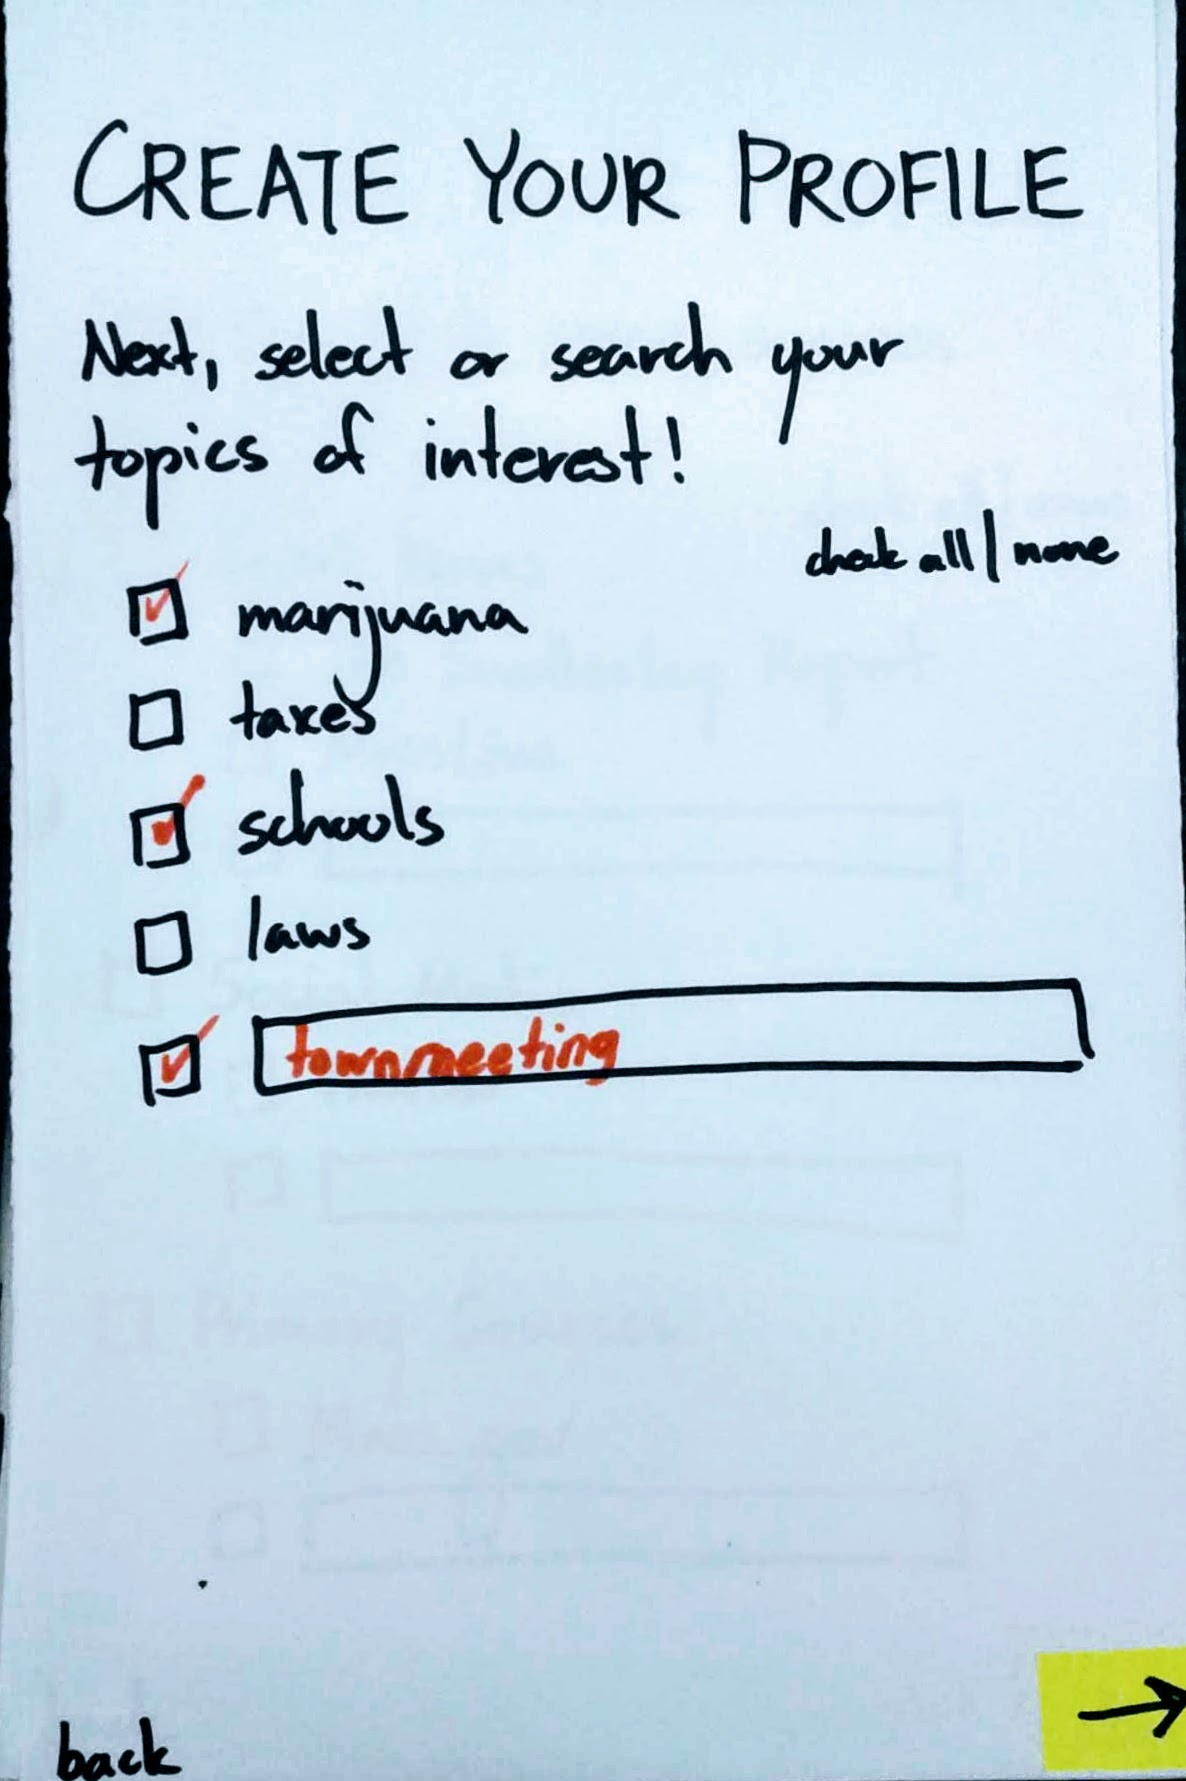 CREATE YOUR PROFILE
Next, select or search your
topics of interest!
check all / none
marijuana
taxes
schools
laws
town meeting
back